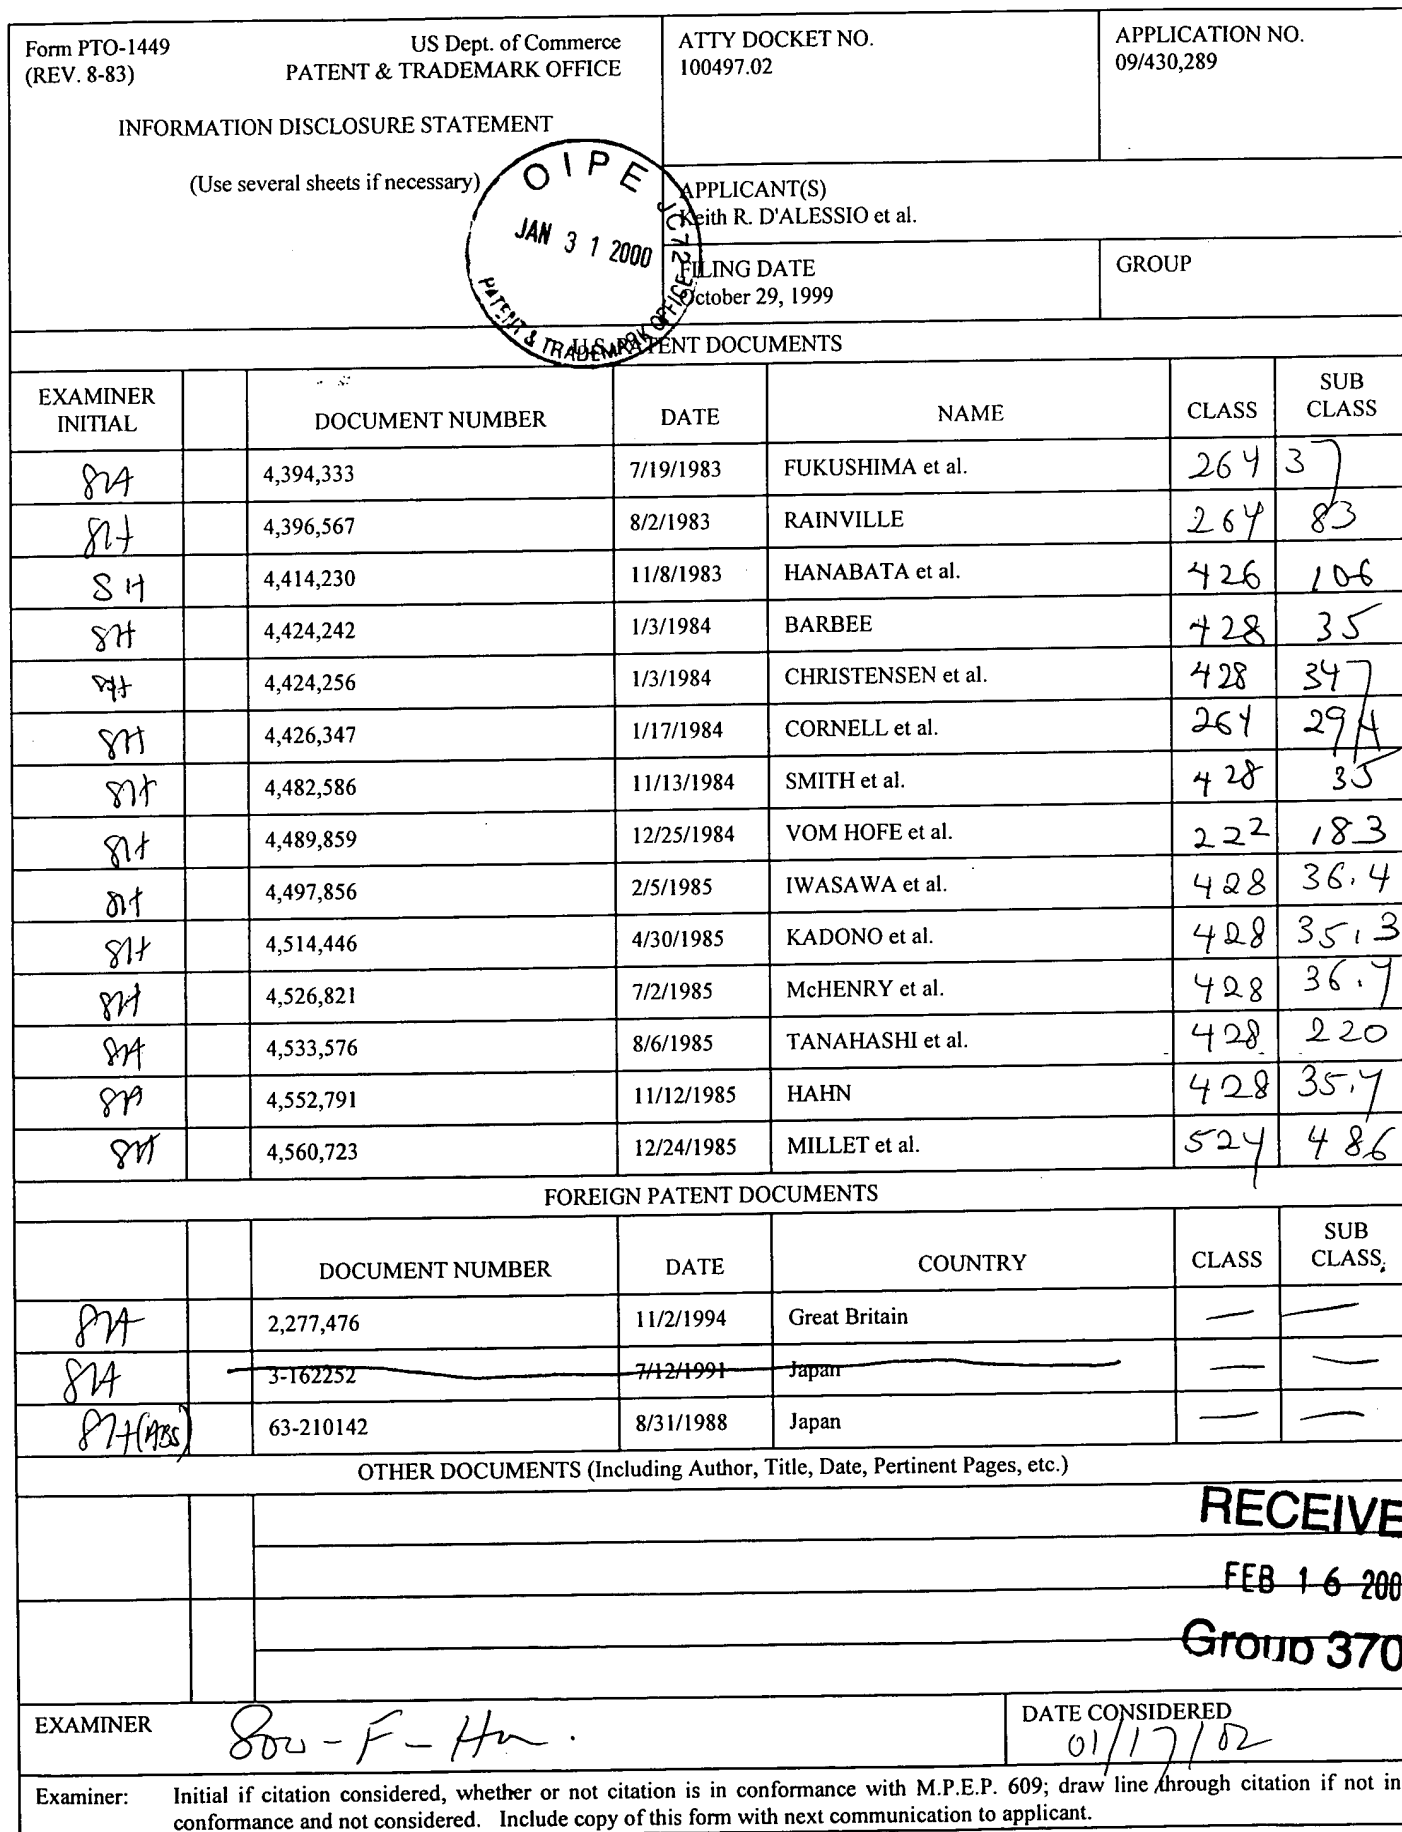 Form PTO-1449 US Dept. of Commerce
(REV. 8-83) PATENT & TRADEMARK OFFICE
INFORMATION DISCLOSURE STATEMENT
(Use several sheets if necessary)
ATTY DOCKET NO.
100497.02
APPLICATION NO.
09/430,289
APPLICANT(S)
Keith R. D'ALESSIO et al.
FILING DATE
October 29, 1999
GROUP
OIPE JC72
JAN 31 2000
PATENT & TRADEMARK OFFICE
U.S. PATENT DOCUMENTS
EXAMINER INITIAL DOCUMENT NUMBER DATE NAME CLASS SUB CLASS
SH 4,394,333 7/19/1983 FUKUSHIMA et al. 264 37
SH 4,396,567 8/2/1983 RAINVILLE 264 83
SH 4,414,230 11/8/1983 HANABATA et al. 426 106
SH 4,424,242 1/3/1984 BARBEE 428 35
SH 4,424,256 1/3/1984 CHRISTENSEN et al. 428 347
SH 4,426,347 1/17/1984 CORNELL et al. 264
SH 4,482,586 11/13/1984 SMITH et al. 428 35
SH 4,489,859 12/25/1984 VOM HOFE et al. 222 183
SH 4,497,856 2/5/1985 IWASAWA et al. 428 36.4
SH 4,514,446 4/30/1985 KADONO et al. 428 35.3
SH 4,526,821 7/2/1985 McHENRY et al. 428 36.4
SH 4,533,576 8/6/1985 TANAHASHI et al. 428 220
SH 4,552,791 11/12/1985 HAHN 428 35.4
SH 4,560,723 12/24/1985 MILLET et al. 524 486
FOREIGN PATENT DOCUMENTS
DOCUMENT NUMBER DATE COUNTRY CLASS SUB CLASS
SH 2,277,476 11/2/1994 Great Britain — —
SH 3-162252 7/12/1991 Japan — —
SH (ABS) 63-210142 8/31/1988 Japan — —
OTHER DOCUMENTS (Including Author, Title, Date, Pertinent Pages, etc.)
RECEIVE
FEB 16 200
Group 370
EXAMINER
DATE CONSIDERED
01/17/02
Examiner: Initial if citation considered, whether or not citation is in conformance with M.P.E.P. 609; draw line through citation if not in
conformance and not considered. Include copy of this form with next communication to applicant.